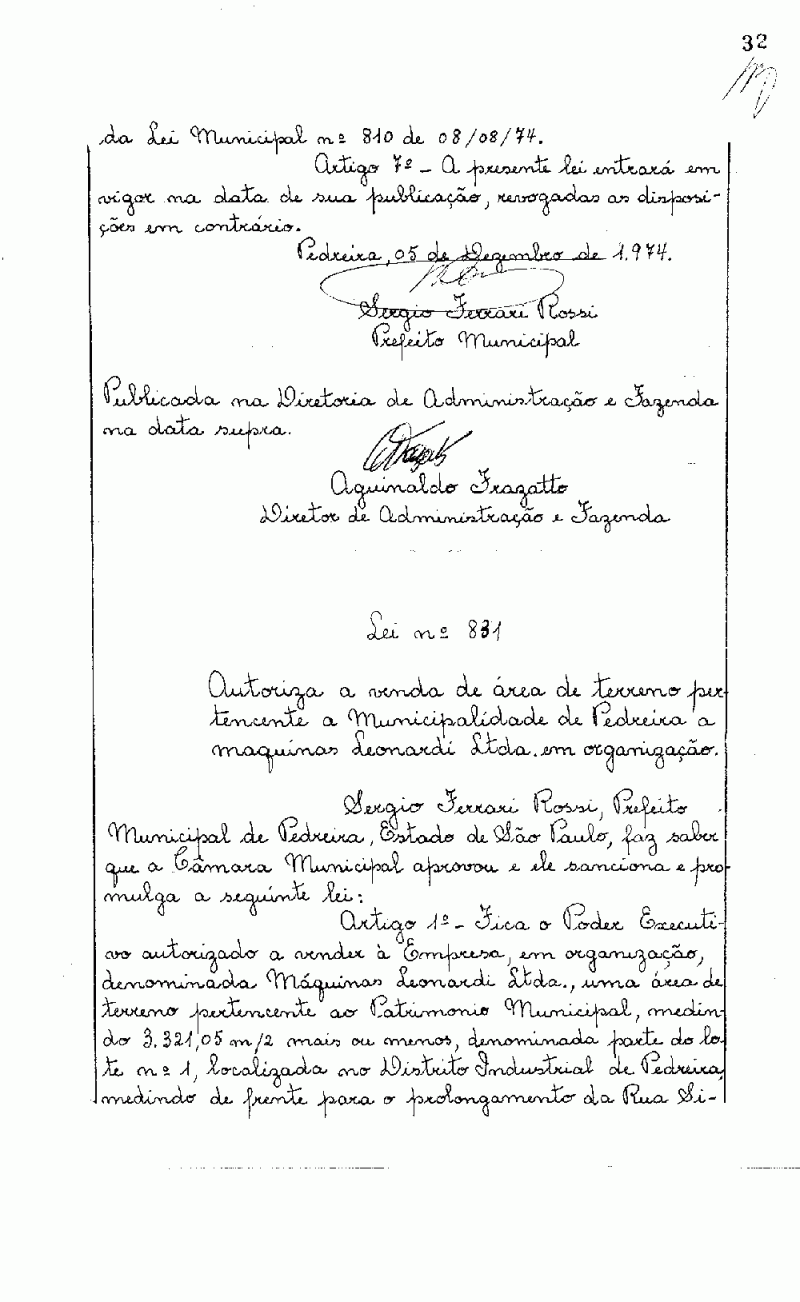 32
da Lei Municipal nº 810 de 08/08/74.
Artigo 7º - A presente lei entrará em
vigor na data de sua publicação, revogadas as disposi-
ções em contrário.
Pedreira, 05 de Dezembro de 1.974.
Sergio Ferrari Rossi
Prefeito Municipal
Publicada na Diretoria de Administração e Fazenda
na data supra.
Aguinaldo Frazatto
Diretor de Administração e Fazenda
Lei nº 831
Autoriza a venda de área de terreno per-
tencente a Municipalidade de Pedreira a
maquinas Leonardi Ltda. em organização.
Sergio Ferrari Rossi, Prefeito
Municipal de Pedreira, Estado de São Paulo, faz saber
que a Câmara Municipal aprovou e ele sanciona e pro-
mulga a seguinte lei:
Artigo 1º - Fica o Poder Executi-
vo autorizado a vender à Empresa, em organização,
denominada Máquinas Leonardi Ltda., uma área de
terreno pertencente ao Patrimonio Municipal, medin-
do 3.321,05 m/2 mais ou menos, denominada parte do lo-
te nº 1, localizada no Distrito Industrial de Pedreira,
medindo de frente para o prolongamento da Rua Si-